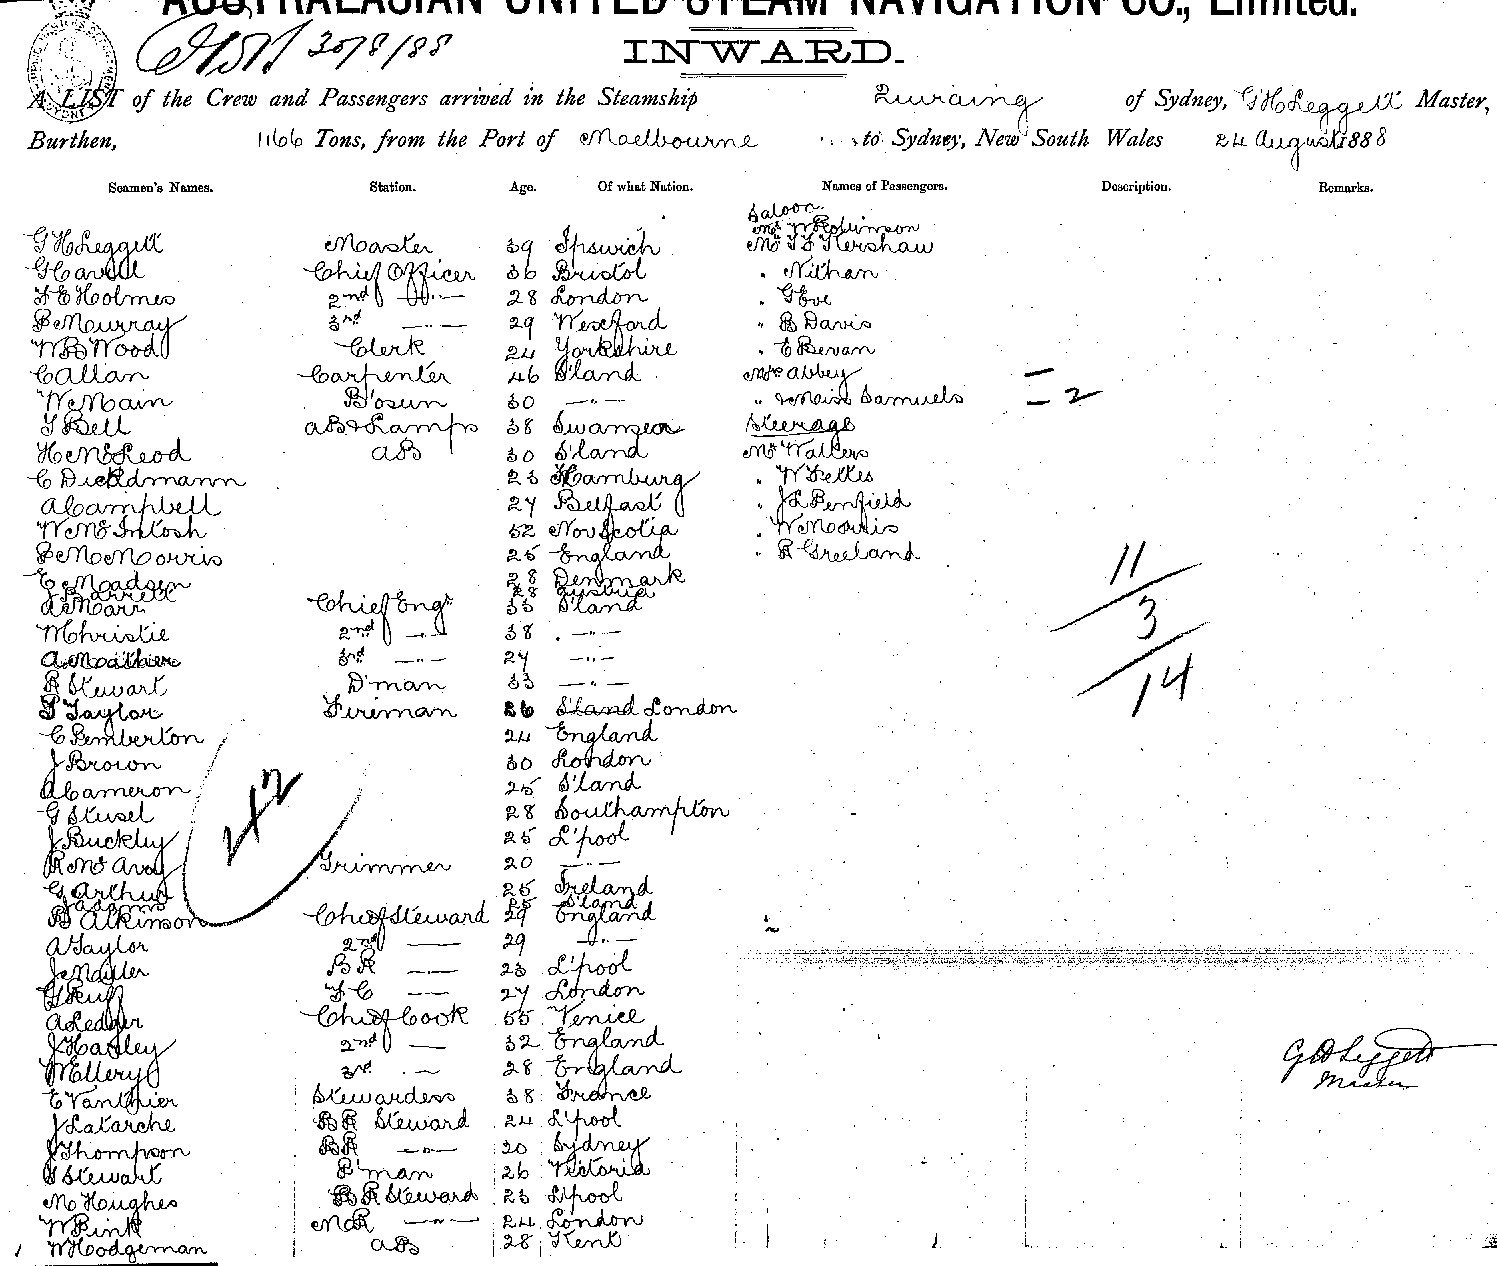 AUSTRALASIAN UNITED STEAM NAVIGATION CO., Limited.
30/8/88
INWARD.
A LIST of the Crew and Passengers arrived in the Steamship Quiraing of Sydney, G H Leggett Master,
Burthen, 1166 Tons, from the Port of Melbourne to Sydney, New South Wales 24 August 1888
Seamen's Names. Station. Age. Of what Nation. Names of Passengers. Description. Remarks.
Saloon
Mr W Robinson
G H Leggett Master 39 Ipswich Mr T F Kershaw
Chief Officer 36 Bristol " Nithan
F E Holmes 2nd —"— 28 London " G Eve
P Murray 3rd —"— 29 Wexford " B Davis
W B Wood Clerk 24 Yorkshire " E Bevan
C Allan Carpenter 46 S'land Mrs Abbey = 2
W Main B'osun 30 —"— " & Miss Samuels
T Bell AB & Lamps 38 Swansea Steerage
H McLeod AB 30 S'land Mr Walters
C Dieckdmann 23 Hamburg " W Fettes
A Campbell 27 Belfast " J L Penfield
W McIntosh 52 Nov Scotia " W Morris
P M Morris 25 England " R Greeland
E Madsen 28 Denmark 11
J Barrett 28 Austria
A Marr Chief Engr 33 S'land 3
M Christie 2nd —"— 38 —"—
A Mathier 3rd —"— 27 —"— 14
R Stewart D'man 33 —"—
T Taylor Fireman 26 S'land London
C Pemberton 24 England
J Brown 30 London
A Cameron 25 S'land
G Stusel 28 Southampton
42
J Buckley 25 L'pool
R McAvoy Trimmer 20 —"—
G Arthur 25 Ireland
Adams 25 S'land
B Atkinson Chief Steward 29 England
A Taylor 2nd — 29 —"—
J Miller BR — 23 L'pool
G Ruff F C — 27 London
A Ledger Chief Cook 55 Venice
J Hartley 2nd — 32 England
W Ellery 3rd — 28 England
G H Leggett
Master
E Vanthier Stewardess 38 France
J Latarche BR Steward 24 L'pool
J Thompson BR —"— 20 Sydney
G Stewart P'man 26 Victoria
M Hughes BR Steward 23 L'pool
W Pink MR —"— 24 London
W Hodgeman AB 28 Kent